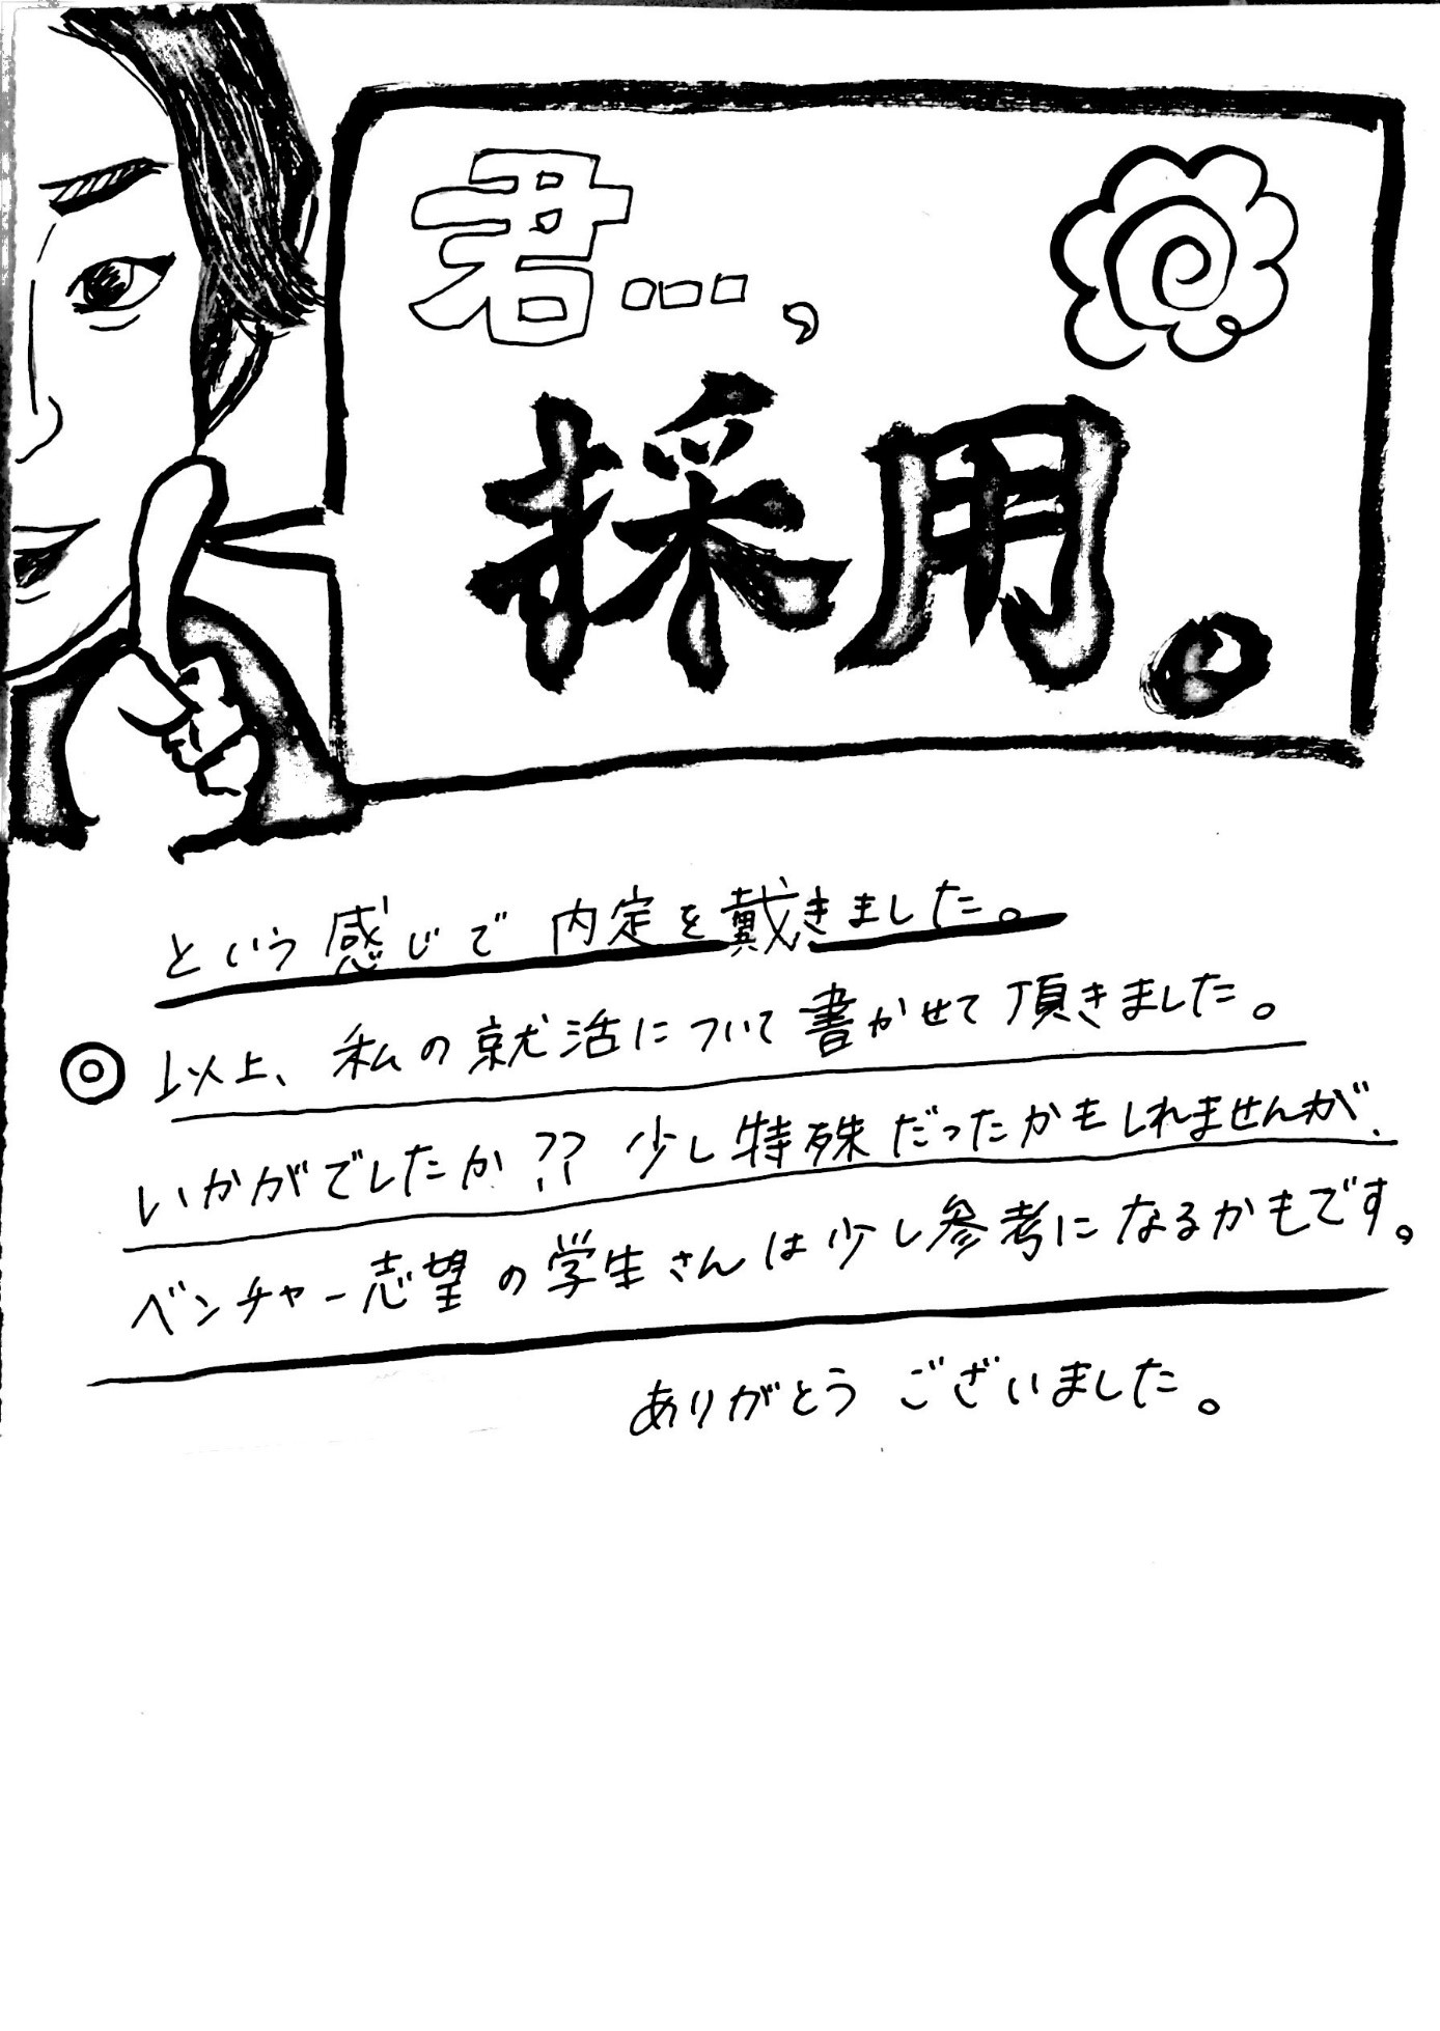 君…,
採用。
という感じで内定を戴きました。
◎以上、私の就活について書かせて頂きました。
いかがでしたか?? 少し特殊だったかもしれませんが、
ベンチャー志望の学生さんは少し参考になるかもです。
ありがとうございました。